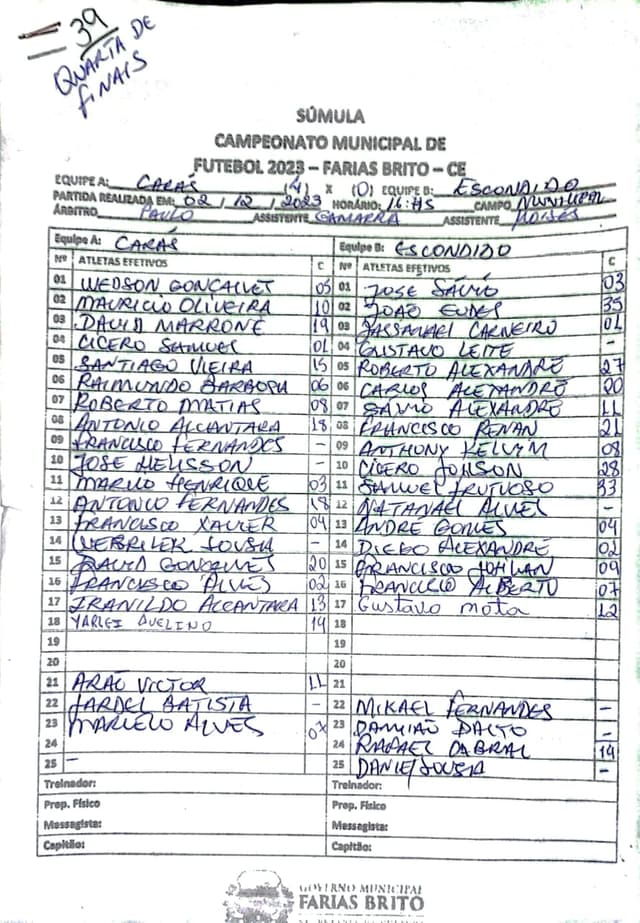 = 39
QUARTA DE
FINAIS
SÚMULA
CAMPEONATO MUNICIPAL DE
FUTEBOL 2023 – FARIAS BRITO – CE
EQUIPE A: CARÁS (4) X (0) EQUIPE B: ESCONDIDO
PARTIDA REALIZADA EM: 02 / 12 / 2023 HORÁRIO: 16: CAMPO MUNICIPAL
ÁRBITRO PAULO ASSISTENTE GAMARRA ASSISTENTE MOISÉS
Equipe A: CARÁS Equipe B: ESCONDIDO
Nº ATLETAS EFETIVOS C Nº ATLETAS EFETIVOS C
01 WEDSON GONÇALVES 05 01 JOSE SÁVIO 03
02 MAURICIO OLIVEIRA 10 02 JOÃO EUDES 35
03 DAVID MARRONE 19 03 CARNEIRO 01
04 CICERO SAMUEL 01 04 GUSTAVO LEITE -
05 SANTIAGO VIEIRA 15 05 ROBERTO ALEXANDRÉ 27
06 RAIMUNDO BARBOSA 06 06 CARLOS ALEXANDRÉ 20
07 ROBERTO MATIAS 08 07 SÁVIO ALEXANDRÉ 11
08 ANTONIO ALCANTARA 18 08 FRANCISCO RENAN 21
09 FRANCISCO FERNANDES - 09 ANTHONY KELVIM 08
10 JOSE - 10 CÍCERO JONSON 28
11 HENRIQUE 03 11 SAMUEL FRUTUOSO 33
12 ANTONIO FERNANDES 18 12 NATANAEL ALVES -
13 FRANCISCO XAVIER 04 13 ANDRÉ GOMES 04
14 SOUSA - 14 DIEGO ALEXANDRÉ 02
15 DAVID GONÇALVES 20 15 FRANCISCO 09
16 FRANCISCO ALVES 02 16 FRANCISCO ALBERTO 07
17 FRANILDO ALCANTARA 13 17 Gustavo mota 12
18 YARLEI AVELINO 14 18
19 19
20 20
21 ARÃO VICTOR 11 21
22 JARDEL BATISTA - 22 MIKAEL FERNANDES -
23 MARCELO ALVES 07 23 DAMIÃO -
24 24 RAFAEL CABRAL 14
25 - 25 DANIEL SOUSA -
Treinador: Treinador:
Prep. Físico Prep. Físico
Massagista: Massagista:
Capitão: Capitão:
GOVERNO MUNICIPAL
FARIAS BRITO